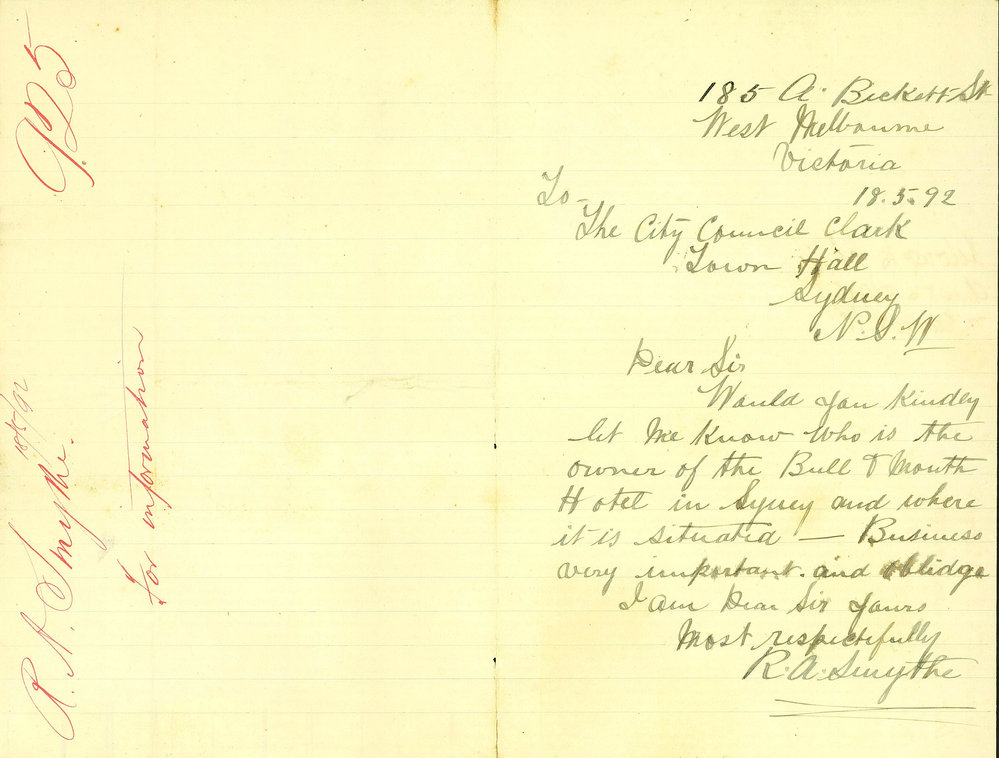 185 A'Beckett St
West Melbourne
Victoria
18.5.92
To
The City Council Clark
Town Hall
Sydney
N.S.W
Dear Sir
Would you kindly
let me know who is the
owner of the Bull & Mouth
Hotel in Syney and where
it is situated — Business
very important. and oblidge
I am Dear Sir yours
Most respectifully
R.A. Smythe
R. A. Smythe.
18/5/92
For information